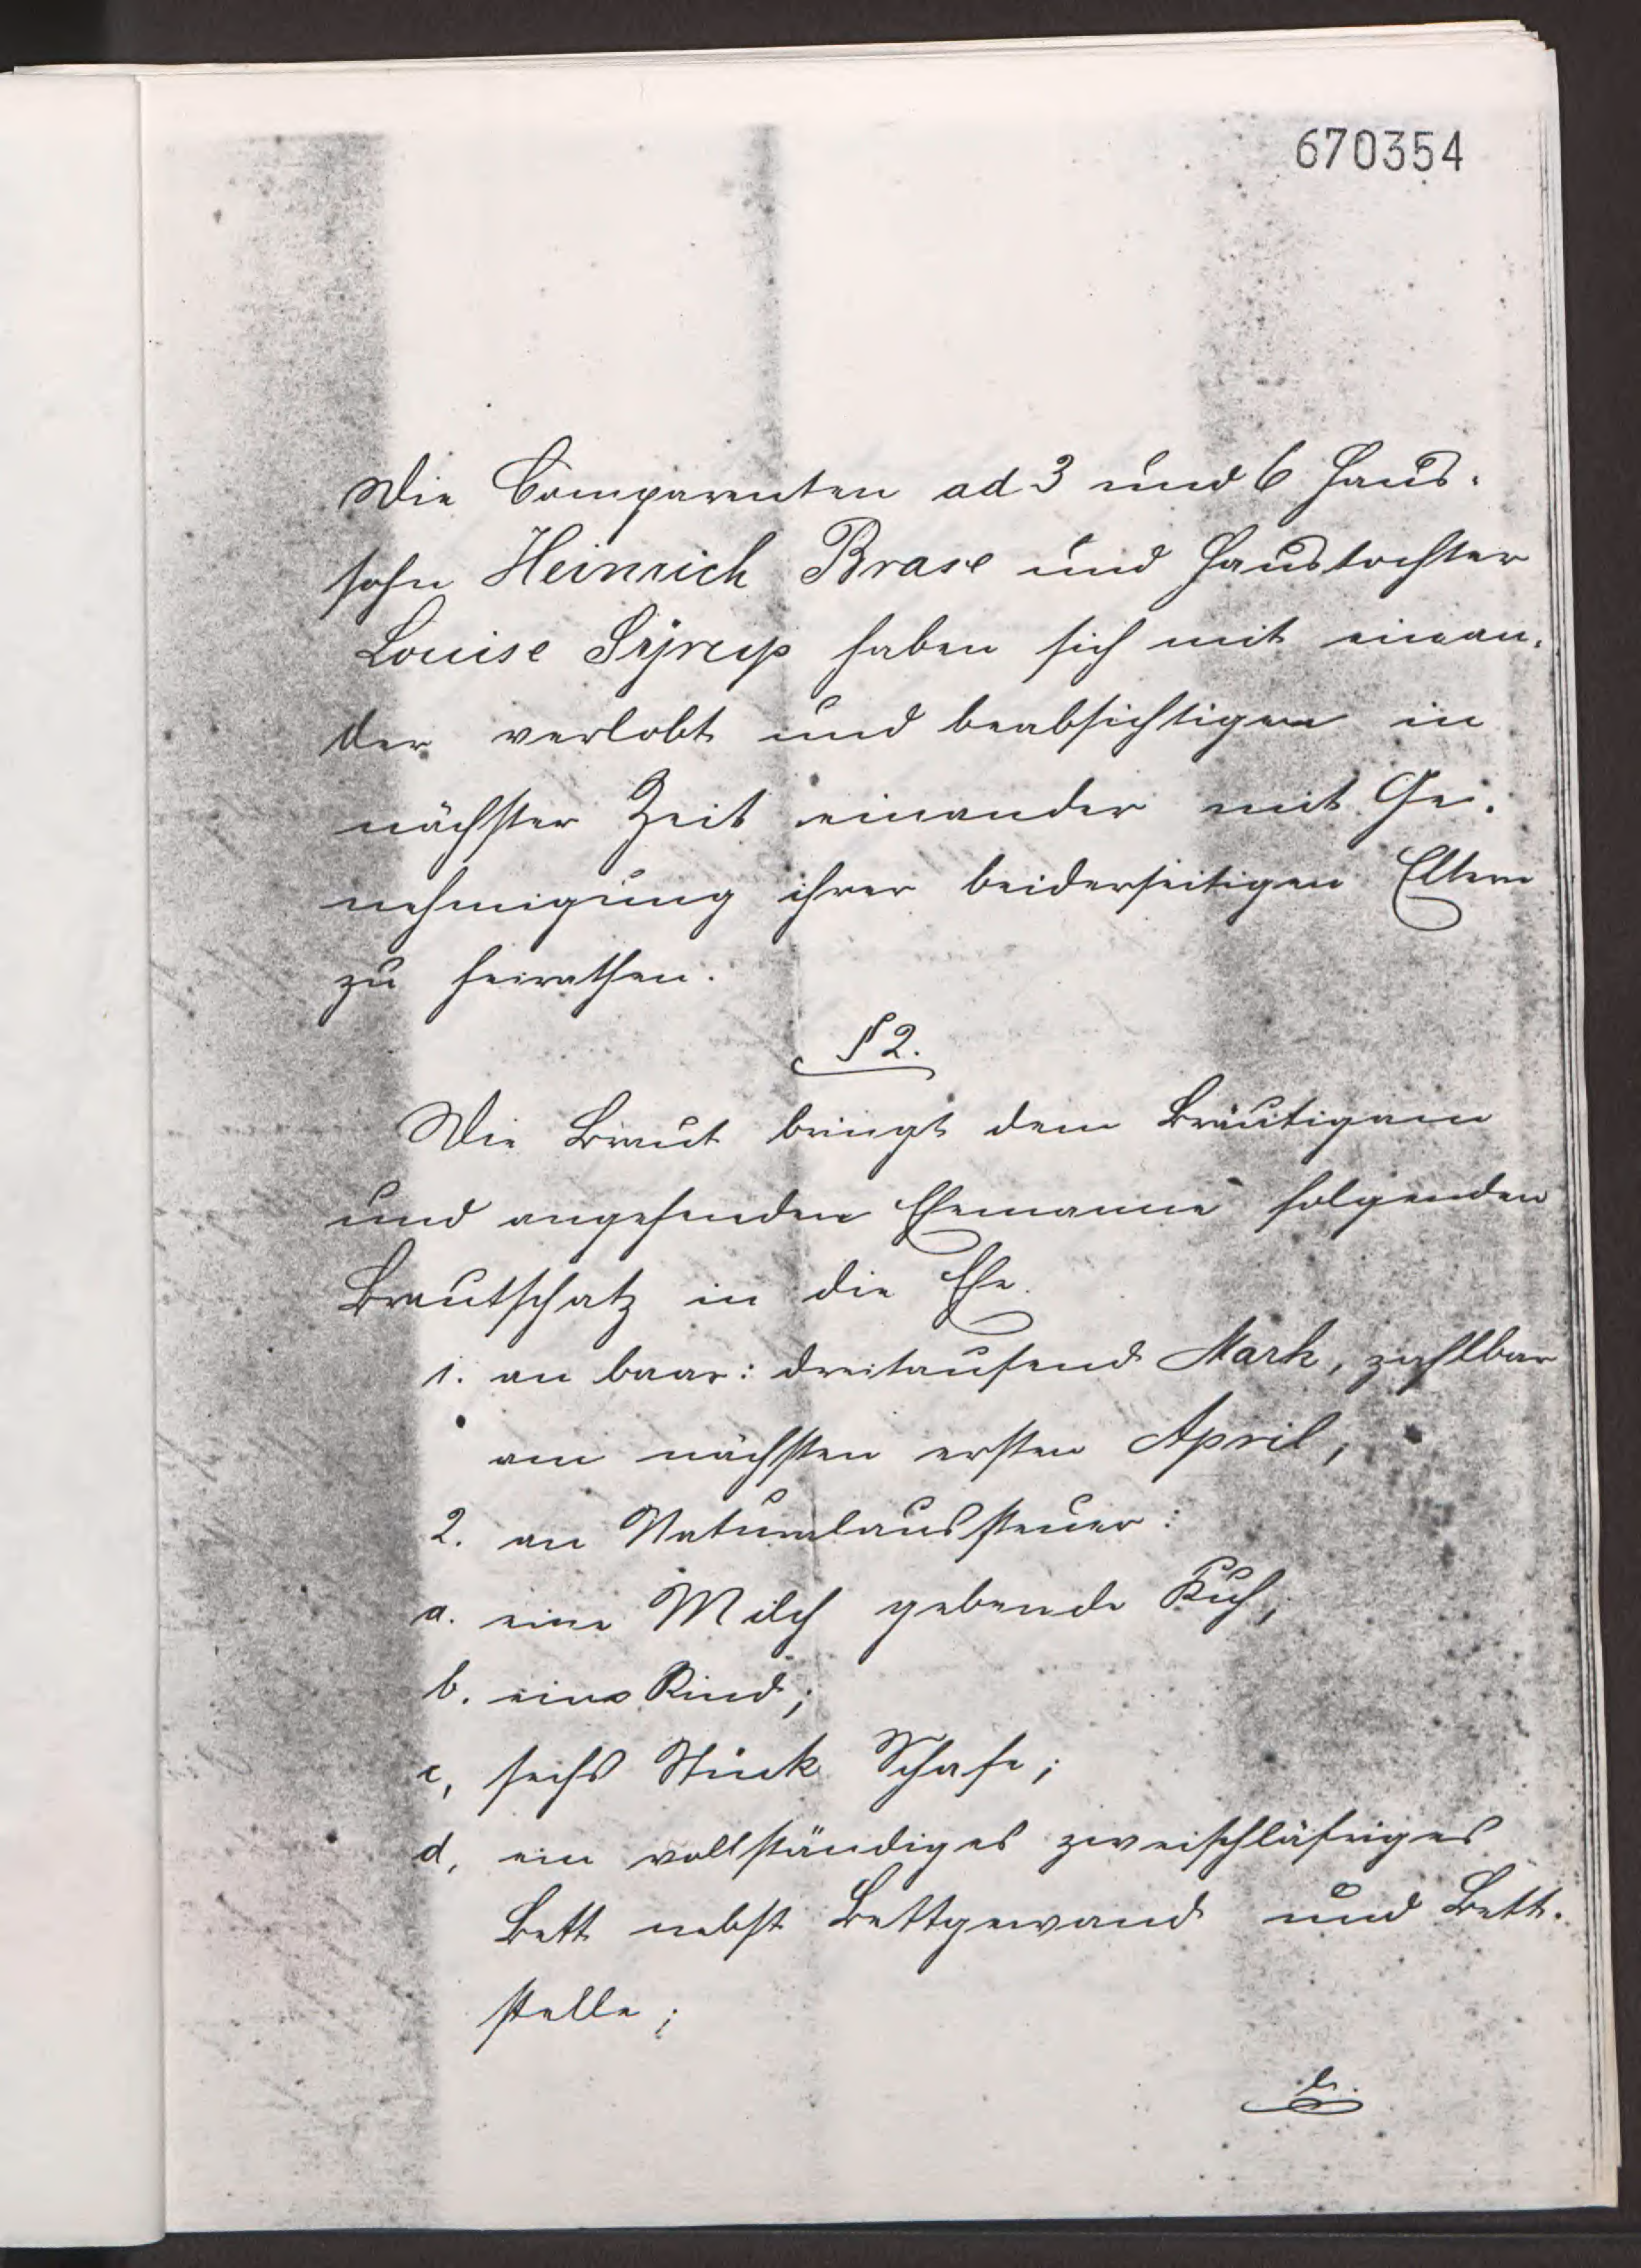 670354
Die Comparenten ad 3 und 6 Haus-
sohn Heinrich Brase und Haustochter
Louise Sÿrup haben sich mit einan-
der verlobt und beabsichtigen in
nächster Zeit einander mit Ge-
nehmigung ihrer beiderseitigen Eltern
zu heirathen.
§ 2.
Die Braut bringt dem Bräutigam
und angehenden Ehemanne folgenden
Brautschatz in die Ehe.
1. an baar: dreitausend Mark, zahlbar
am nächsten ersten April;
2. an Naturalaussteuer:
a. eine Milch gebende Kuh;
b. ein Rind;
c, sechs Stück Schafe;
d, ein vollständiges zweischläfriges
Bett nebst Bettgewand und Bett-
stelle;
e.